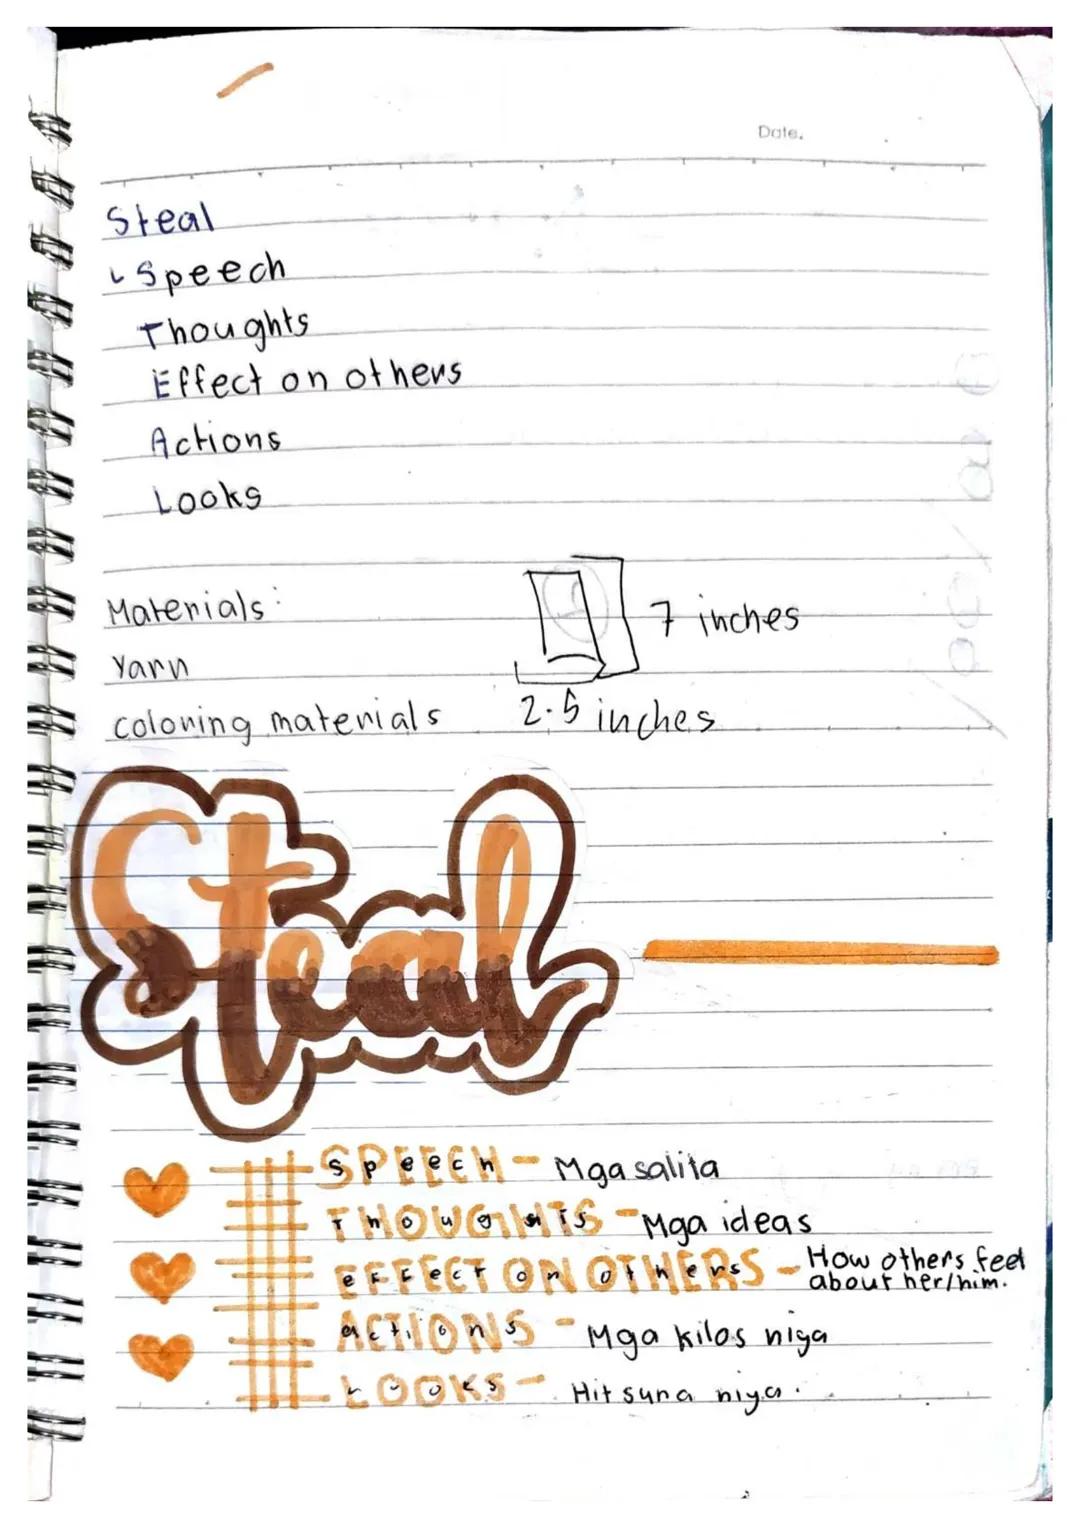 Date.
Steal
Speech
Thoughts
Effect on others
Actions
Looks
Materials:
7 inches
Yarn
coloring materials
2.5 inches
Steal
SPEECH - Mga salita
THOUGHTS - Mga ideas
EFFECT ON OTHERS - How others feel
about her/him.
ACTIONS - Mga kilos niya
LOOKS - Hitsura niya.